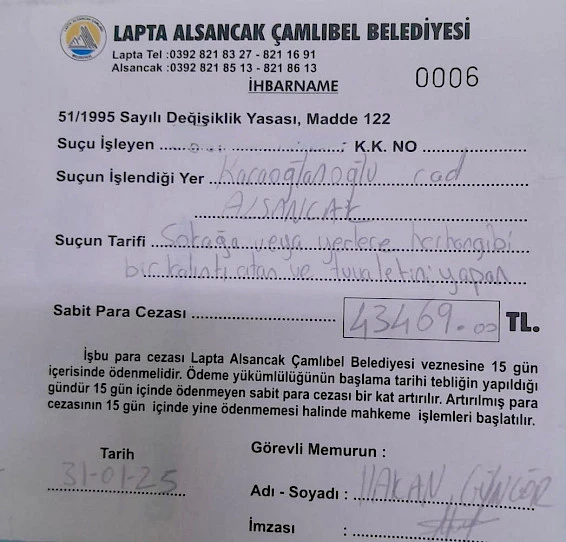 LAPTA ALSANCAK ÇAMLIBEL BELEDİYESİ
Lapta Tel :0392 821 83 27 - 821 16 91
Alsancak :0392 821 85 13 - 821 86 13
İHBARNAME
0006
51/1995 Sayılı Değişiklik Yasası, Madde 122
Suçu İşleyen : K.K. NO
Suçun İşlendiği Yer Karaoğlanoğlu cad
ALSANCAK
Suçun Tarifi Sokağa veya yerlere herhangibi
bir kalıntı atan ve tuvaletini yapan
Sabit Para Cezası 43469.00 TL.
İşbu para cezası Lapta Alsancak Çamlıbel Belediyesi veznesine 15 gün
içerisinde ödenmelidir. Ödeme yükümlülüğünün başlama tarihi tebliğin yapıldığı
gündür 15 gün içinde ödenmeyen sabit para cezası bir kat artırılır. Artırılmış para
cezasının 15 gün içinde yine ödenmemesi halinde mahkeme işlemleri başlatılır.
Tarih
31-01-25
Görevli Memurun :
Adı - Soyadı : HAKAN GÜNGÖR
İmzası :